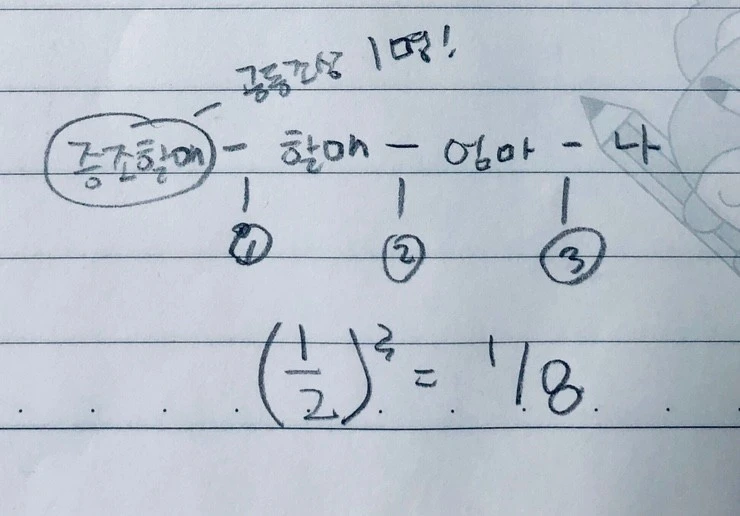 공통조상 1명!
증조할매 - 할매 - 엄마 - 나
① ② ③
(1/2)³ = 1/8